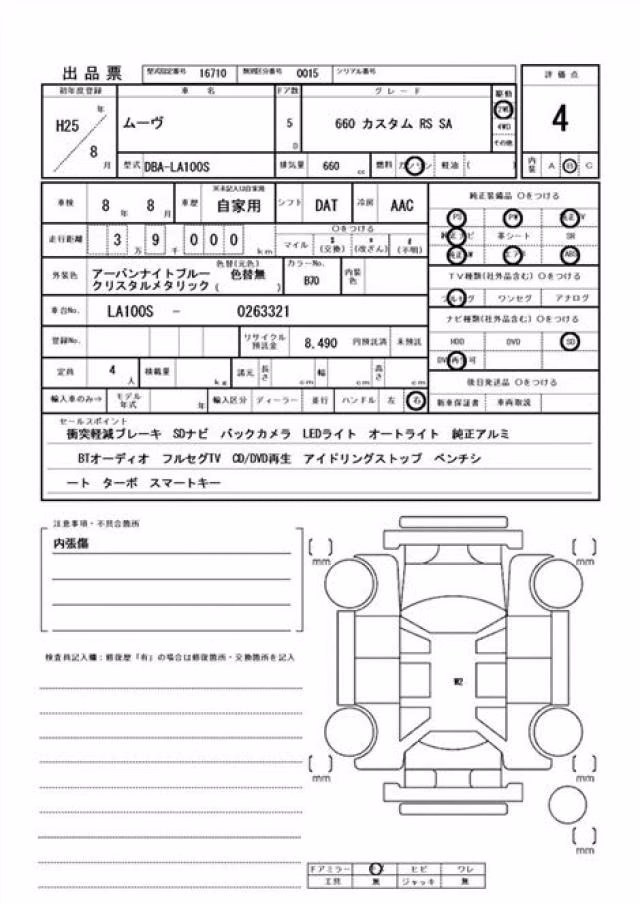 出品票 型式指定番号 16710 類別区分番号 0015 シリアル番号
初年度登録 車名 ドア数 グレード 駆動 評価点
H25 年 8 月 ムーヴ 5 D 660 カスタム RS SA 2WD 4WD その他 4
型式 DBA-LA100S 排気量 660 cc 燃料 ガソリン 軽油 ( ) 内装 A B C
車検 8 年 8 月 車歴 ※未記入は自家用 自家用 シフト DAT 冷房 AAC 純正装備品 ○をつける
PS PW 純正TV
走行距離 3 万 9 千 0 0 0 km ○をつける マイル $ (交換) * (改ざん) # (不明)
純正ナビ 革シート SR
純正AW エアB ABS
外装色 アーバンナイトブルー クリスタルメタリック 色替(元色) 色替無 ( カラーNo. B70 内装色
TV種類(社外品含む) ○をつける
フルセグ ワンセグ アナログ
車台No. LA100S - 0263321
ナビ種類(社外品含む) ○をつける
登録No. リサイクル預託金 8,490 円預託済 未預託
HDD DVD SD
DVD再生可
定員 4 人 積載量 kg 諸元 長さ cm 幅 cm 高さ cm
後日発送品 ○をつける
輸入車のみ⇒ モデル年式 年 輸入区分 ディーラー 並行 ハンドル 左 右 新車保証書 車両取説
セールスポイント
衝突軽減ブレーキ SDナビ バックカメラ LEDライト オートライト 純正アルミ
BTオーディオ フルセグTV CD/DVD再生 アイドリングストップ ベンチシ
ート ターボ スマートキー
注意事項・不具合箇所
内張傷
mm mm
検査員記入欄：修復歴「有」の場合は修復箇所・交換箇所を記入
W2
mm mm
mm
ドアミラー キズ ヒビ ワレ
工具 無 ジャッキ 無